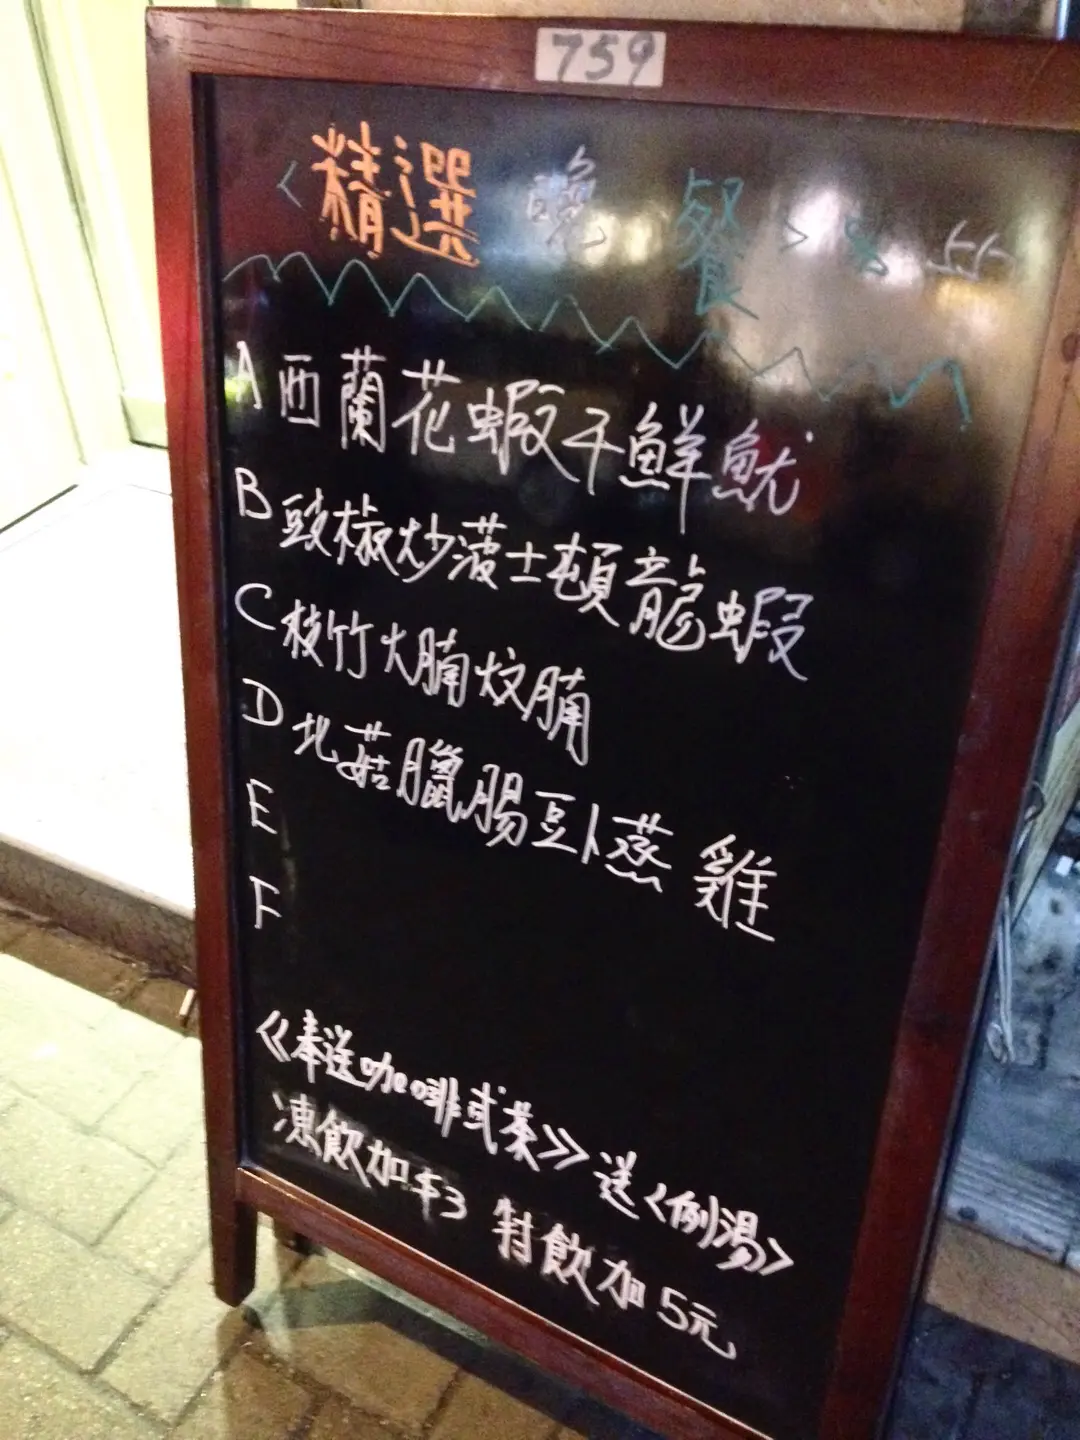 759
<精選 晚 餐> $ 55
A 西蘭花蝦干鮮魷
B 豉椒炒波士頓龍蝦
C 枝竹大腩炆腩
D 北菇臘腸豆卜蒸雞
E
F
《奉送咖啡或茶》送<例湯>
凍飲加$3 特飲加5元